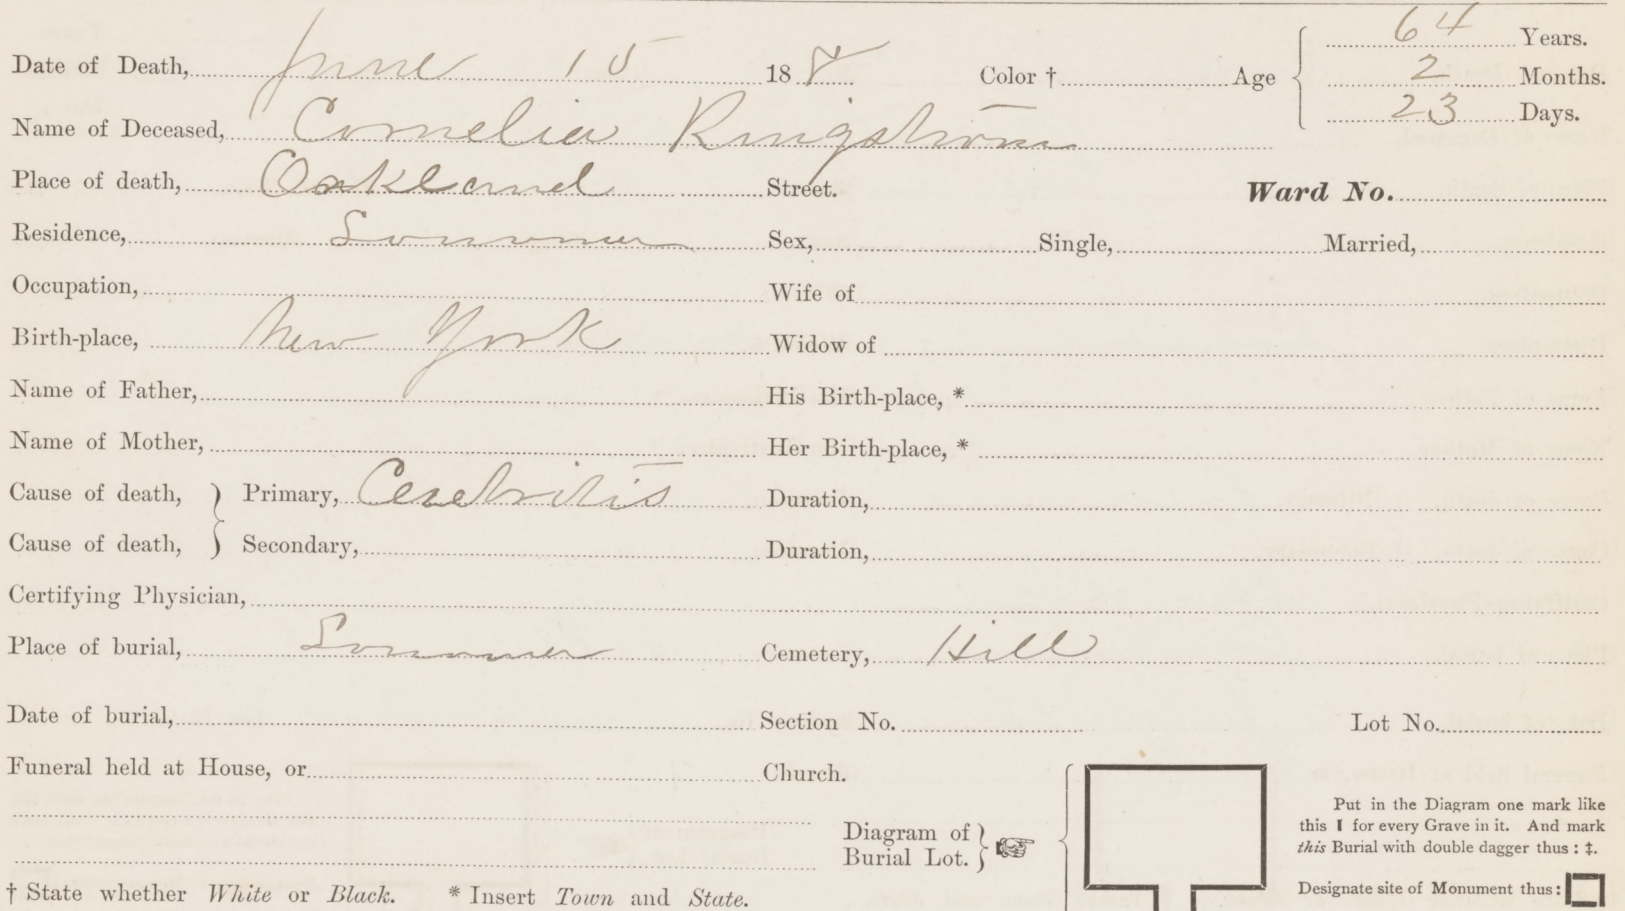 64 Years.
Date of Death, June 15 188 Color † Age 2 Months.
23 Days.
Name of Deceased, Cornelia Ringstrom
Place of death, Oakland Street. Ward No.
Residence, Sonoma Sex, Single, Married,
Occupation, Wife of
Birth-place, New York Widow of
Name of Father, His Birth-place, *
Name of Mother, Her Birth-place, *
Cause of death, } Primary, Cerebritis Duration,
Cause of death, } Secondary, Duration,
Certifying Physician,
Place of burial, Sonoma Cemetery, Hill
Date of burial, Section No. Lot No.
Funeral held at House, or Church.
Put in the Diagram one mark like
this I for every Grave in it. And mark
this Burial with double dagger thus : ‡.
Diagram of
Burial Lot.
Designate site of Monument thus:
† State whether White or Black. * Insert Town and State.